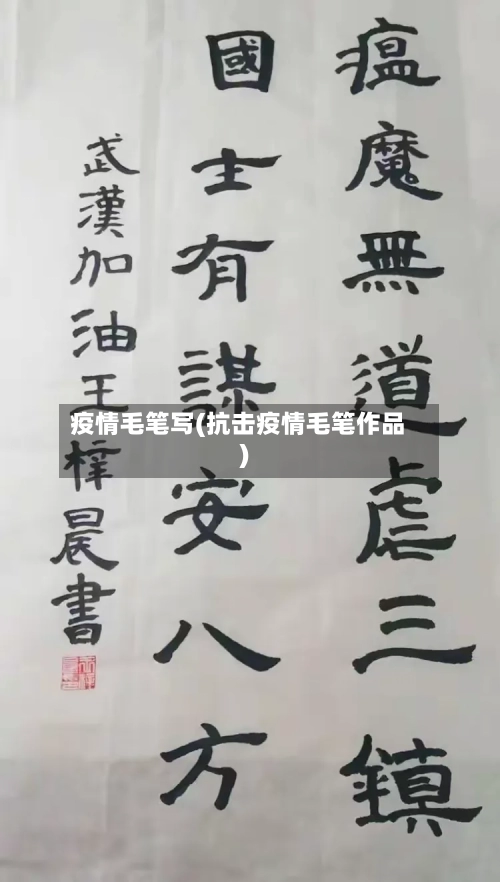 瘟魔無道虐三鎮
國士有謀安八方
武漢加油王梓晨書
疫情毛笔写(抗击疫情毛笔作品
)